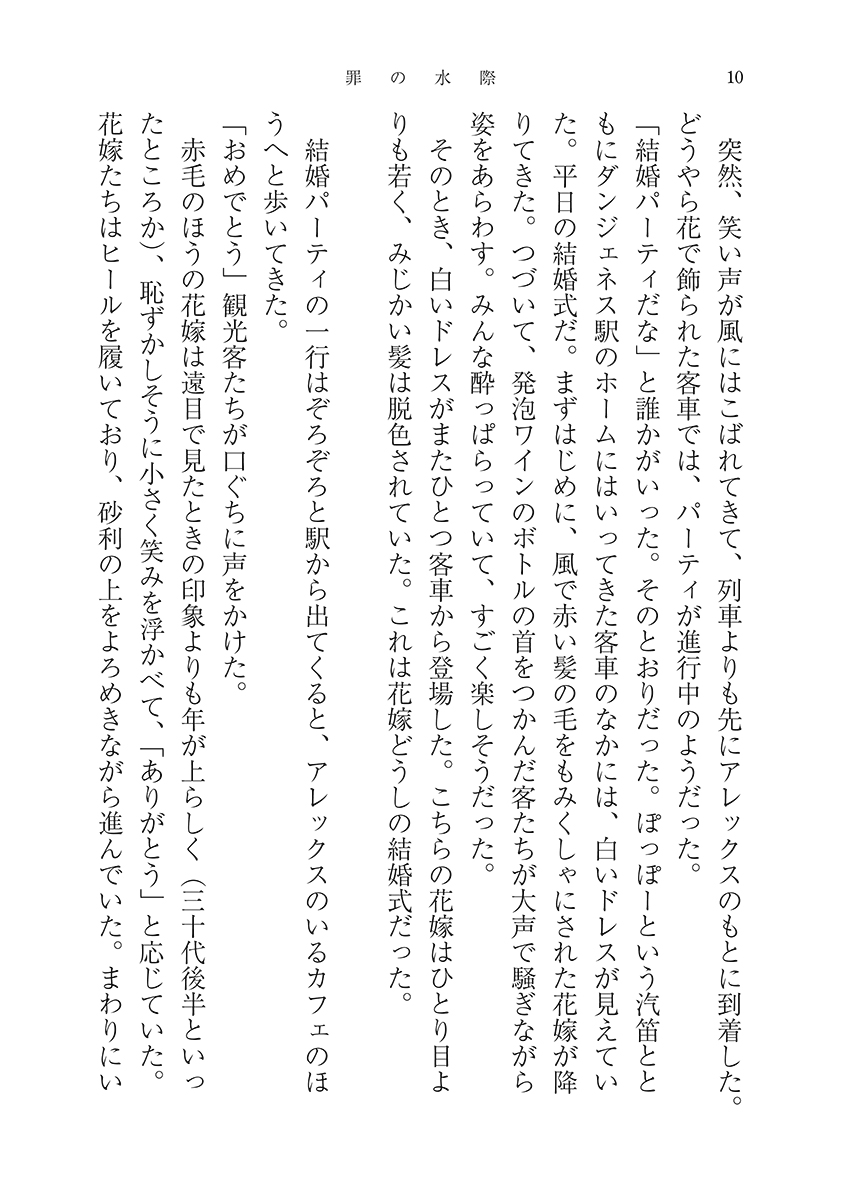 罪の水際
10
突然、笑い声が風にはこばれてきて、列車よりも先にアレックスのもとに到着した。
どうやら花で飾られた客車では、パーティが進行中のようだった。
「結婚パーティだな」と誰かがいった。そのとおりだった。ぽっぽーという汽笛とと
もにダンジェネス駅のホームにはいってきた客車のなかには、白いドレスが見えてい
た。平日の結婚式だ。まずはじめに、風で赤い髪の毛をもみくしゃにされた花嫁が降
りてきた。つづいて、発泡ワインのボトルの首をつかんだ客たちが大声で騒ぎながら
姿をあらわす。みんな酔っぱらっていて、すごく楽しそうだった。
そのとき、白いドレスがまたひとつ客車から登場した。こちらの花嫁はひとり目よ
りも若く、みじかい髪は脱色されていた。これは花嫁どうしの結婚式だった。
結婚パーティの一行はぞろぞろと駅から出てくると、アレックスのいるカフェのほ
うへと歩いてきた。
「おめでとう」観光客たちが口ぐちに声をかけた。
赤毛のほうの花嫁は遠目で見たときの印象よりも年が上らしく（三十代後半といっ
たところか）、恥ずかしそうに小さく笑みを浮かべて、「ありがとう」と応じていた。
花嫁たちはヒールを履いており、砂利の上をよろめきながら進んでいた。まわりにい